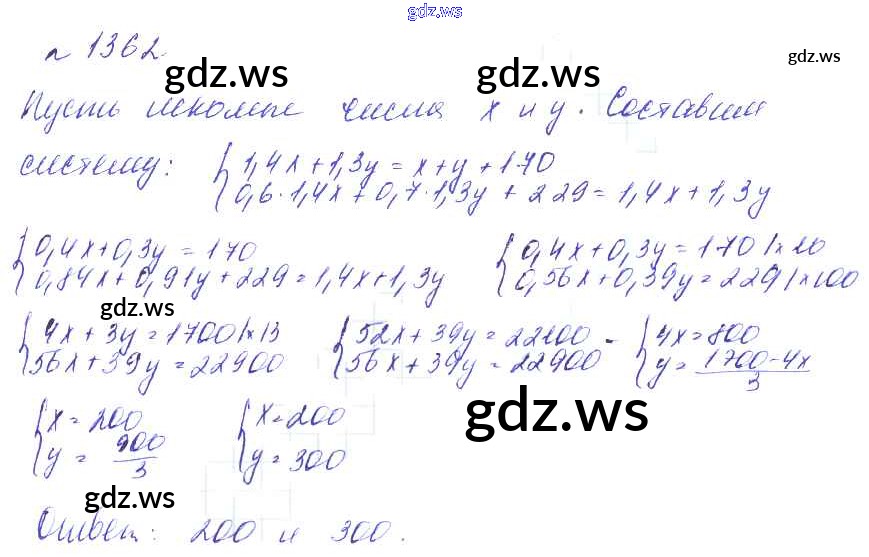 gdz.ws
№ 1362.
gdz.ws gdz.ws gdz.ws
Пусть искомые числа x и y. Составим
систему: { 1,4x+1,3y = x+y+170
0,6·1,4x+0,7·1,3y+229=1,4x+1,3y
{ 0,4x+0,3y=170
0,84x+0,91y+229=1,4x+1,3y
{ 0,4x+0,3y=170 |×10
0,56x+0,39y=229 |×100
gdz.ws
{ 4x+3y=1700 |×13
56x+39y=22900
{ 52x+39y=22100 -
56x+39y=22900
{ 4x=800
y=(1700-4x)/3
gdz.ws
{ x=200
y=900/3
{ x=200
y=300
gdz.ws
Ответ: 200 и 300.